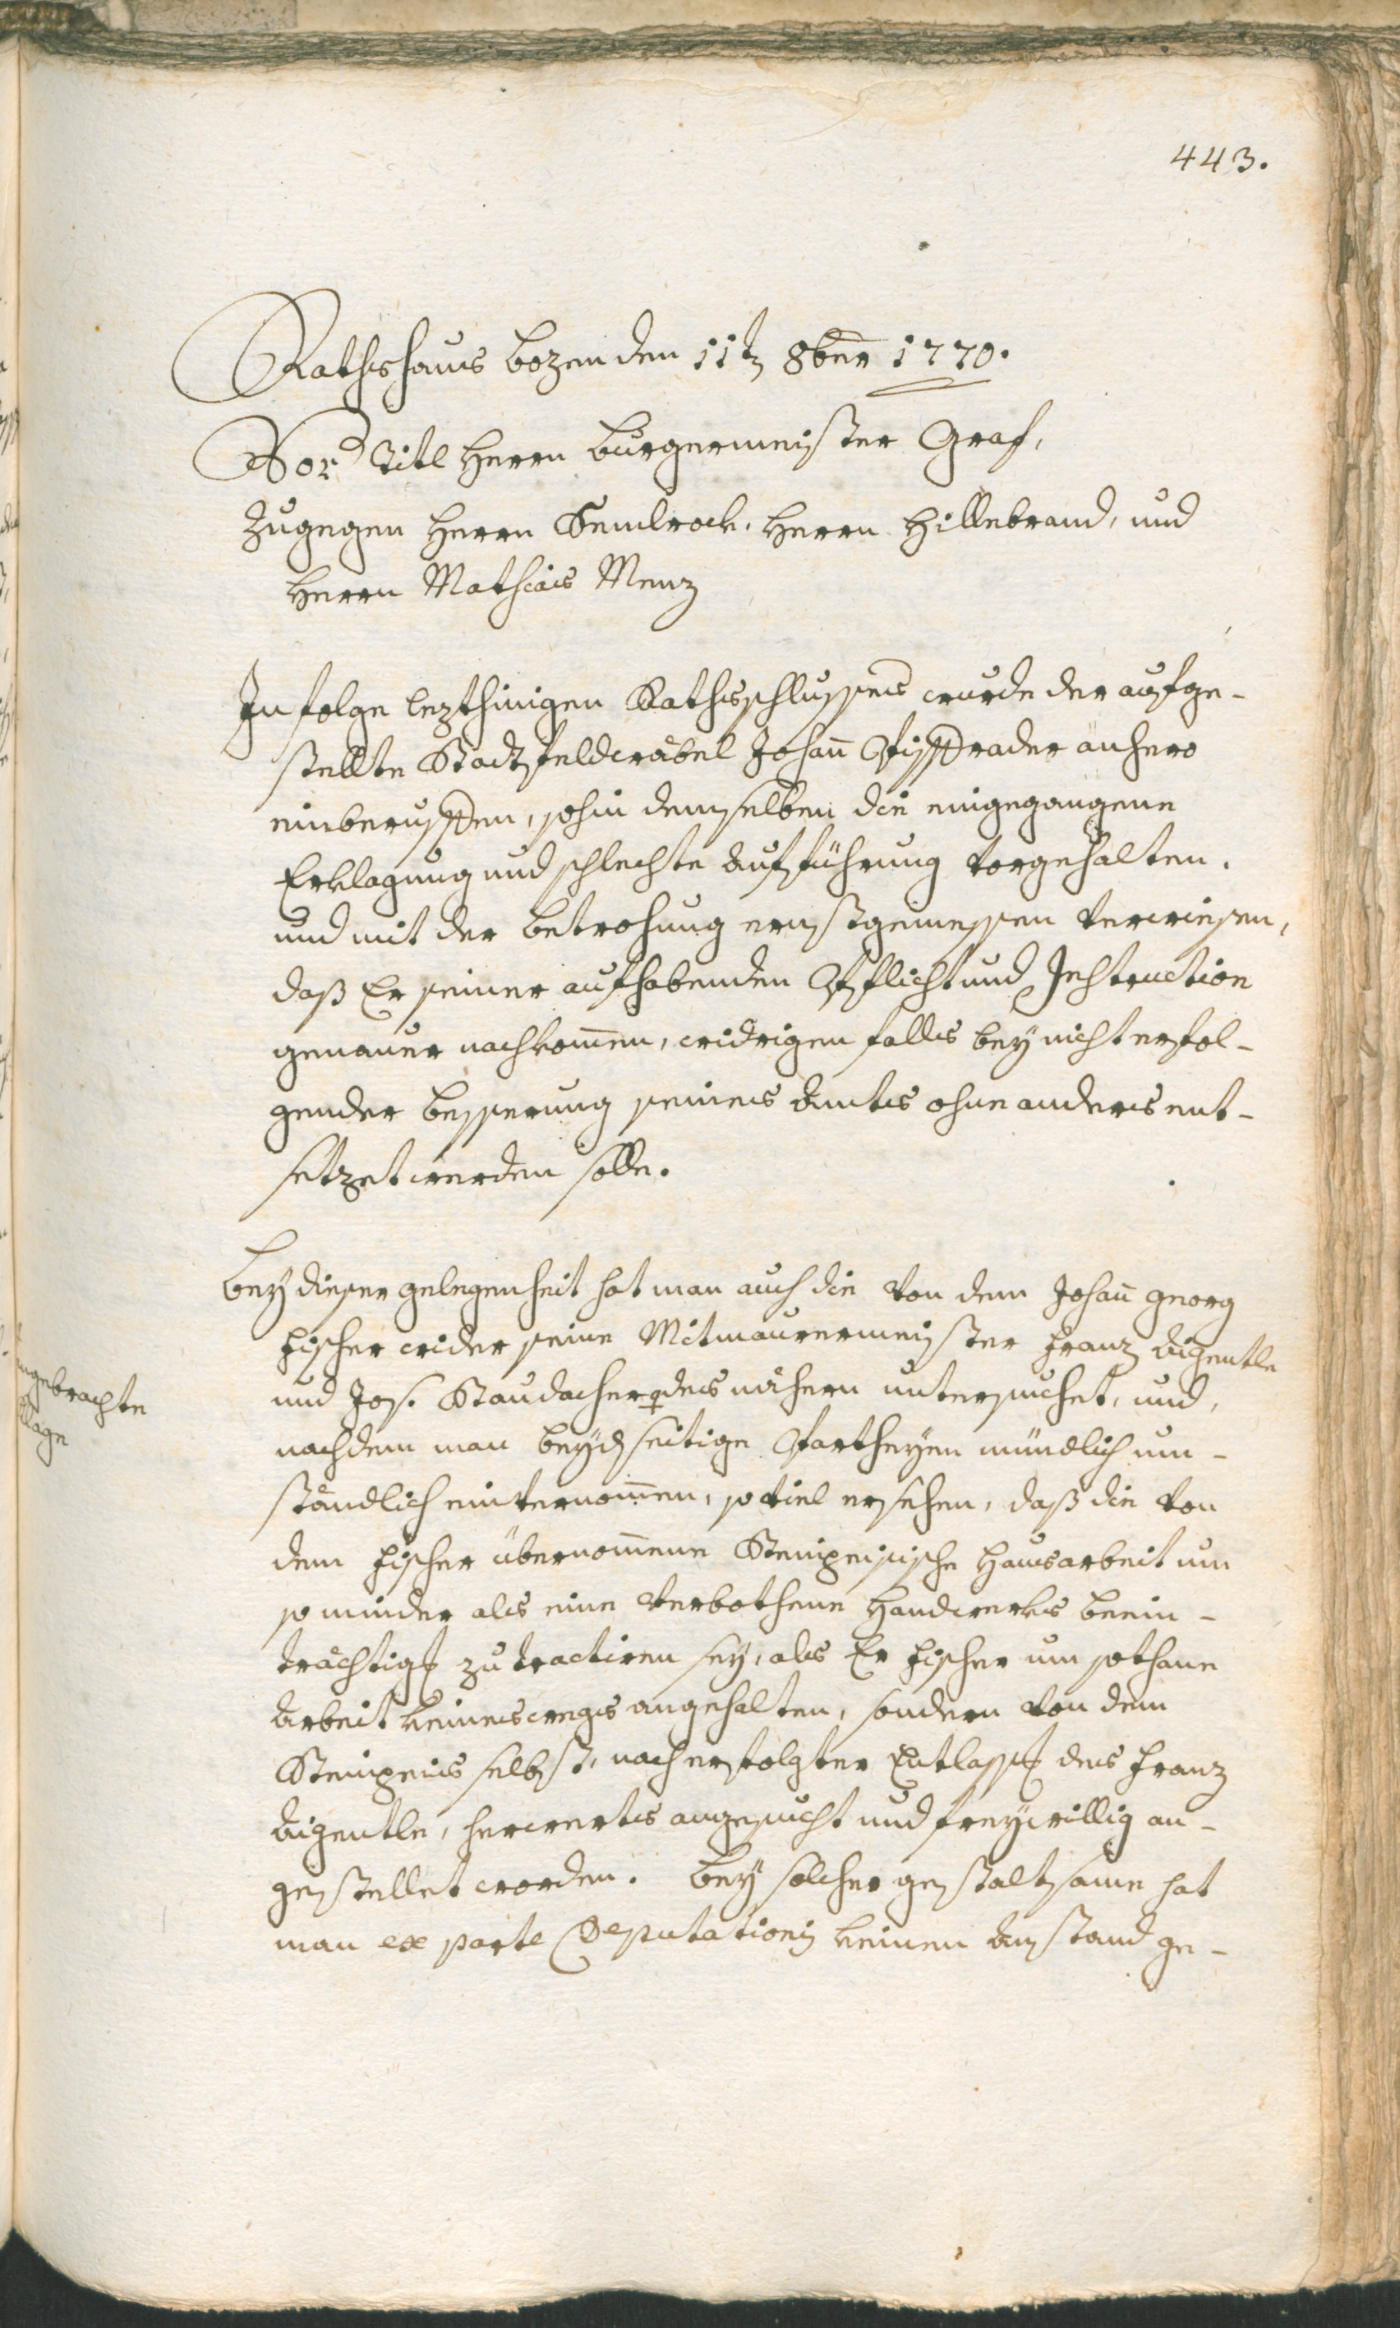 443.
Rathshaus Bozen den 11t 8ber 1770.
Vor Titl Herrn Burgermeister Graf,
Zugegen Herrn Semlrock, Herrn Hillebrand, und
Herrn Mathias Menz
In folge lezthinigen Rathsschlusses wurde der aufge-
stellte Stadtfeldwäbel Johan̄ Pissrader anhero
einberuffen, sohin demselben die eingegangene
Erklagung und schlechte Aufführung vorgehalten,
und mit der Betrohung ernstgemessen verwiesen,
daß Er seiner aufhabenden Pflicht und Instruction
genauer nachkom̄en, widrigen falls bey nicht erfol-
gender Besserung seines Amts ohne anders ent-
setzet werden solle.
Bey dieser gelegenheit hat man auch die von dem Johan̄ Georg
Fischer wider seine Mitmaurermeister Franz Aigentle
und Jos. Staudacher des nähern untersuchet, und,
ngebrachte
klage
nachdem man beydseitige Partheyen mündlich um-
ständlich einvernom̄en, so viel ersehen, daß die von
dem Fischer übernom̄ene Steinpeisische Hausarbeit um
so minder als eine verbothene Handwerks beein-
trächtig zu tractiren sey, als Er Fischer um sothane
Arbeit keineswegs angehalten, sondern von dem
Steinpeis selbst, nach erfolgter Entlass des Franz
Aigentle, herwerts angesucht und freywillig an-
gestellet worden. Bey solcher gestaltsame hat
man ex parte Deputationis keinen Anstand ge-